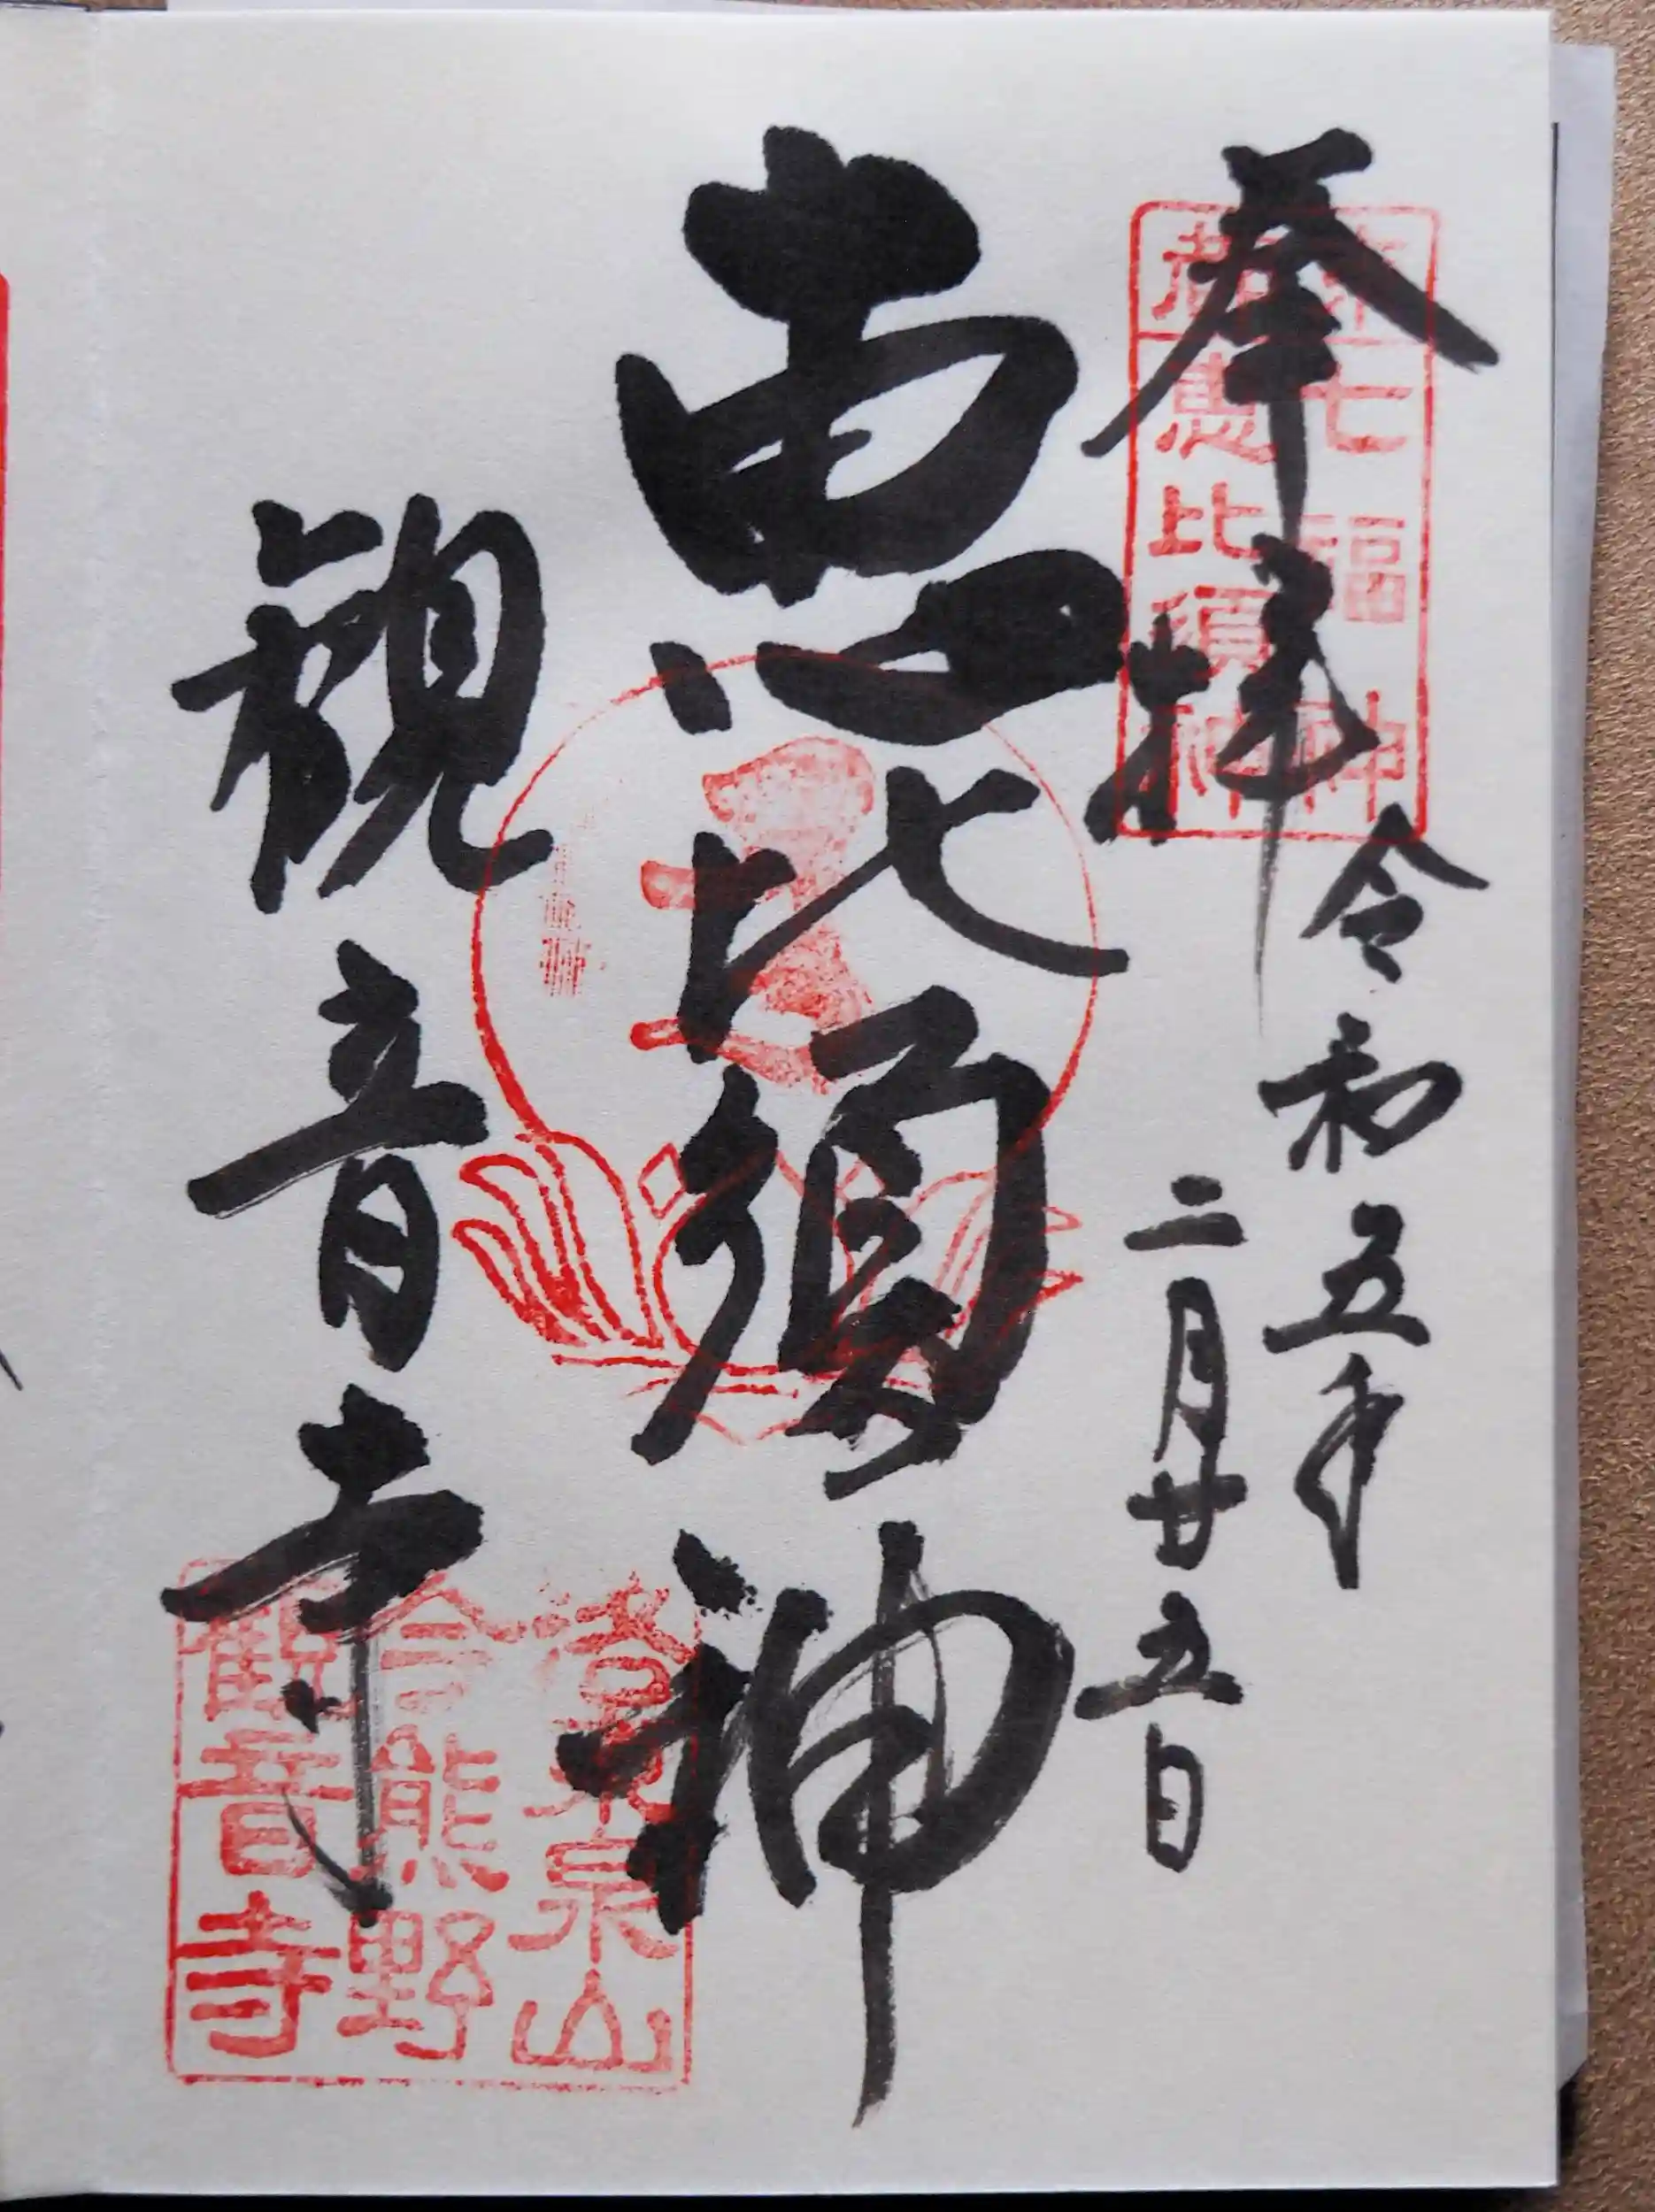 奉拝
令和五年
二月廿五日
恵比須神
観音寺
七福神
恵比須神
泉山
今熊野
観音寺